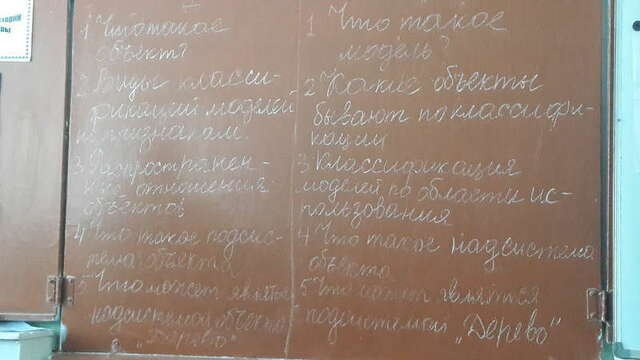 1 Что такое
объект?
2 Виды класси-
фикаций моделей
по признакам.
3 Распространен-
ные отношения
объектов
4 Что такое подсис-
тема объекта
5 Что может являться
надсистемой объекта
„Дерево"
1 Что такое
модель?
2 Какие объекты
бывают по классифи-
кации
3 Классификация
моделей по области ис-
пользования
4 Что такое надсистема
объекта
5 Что может являться
подсистемой „Дерево"